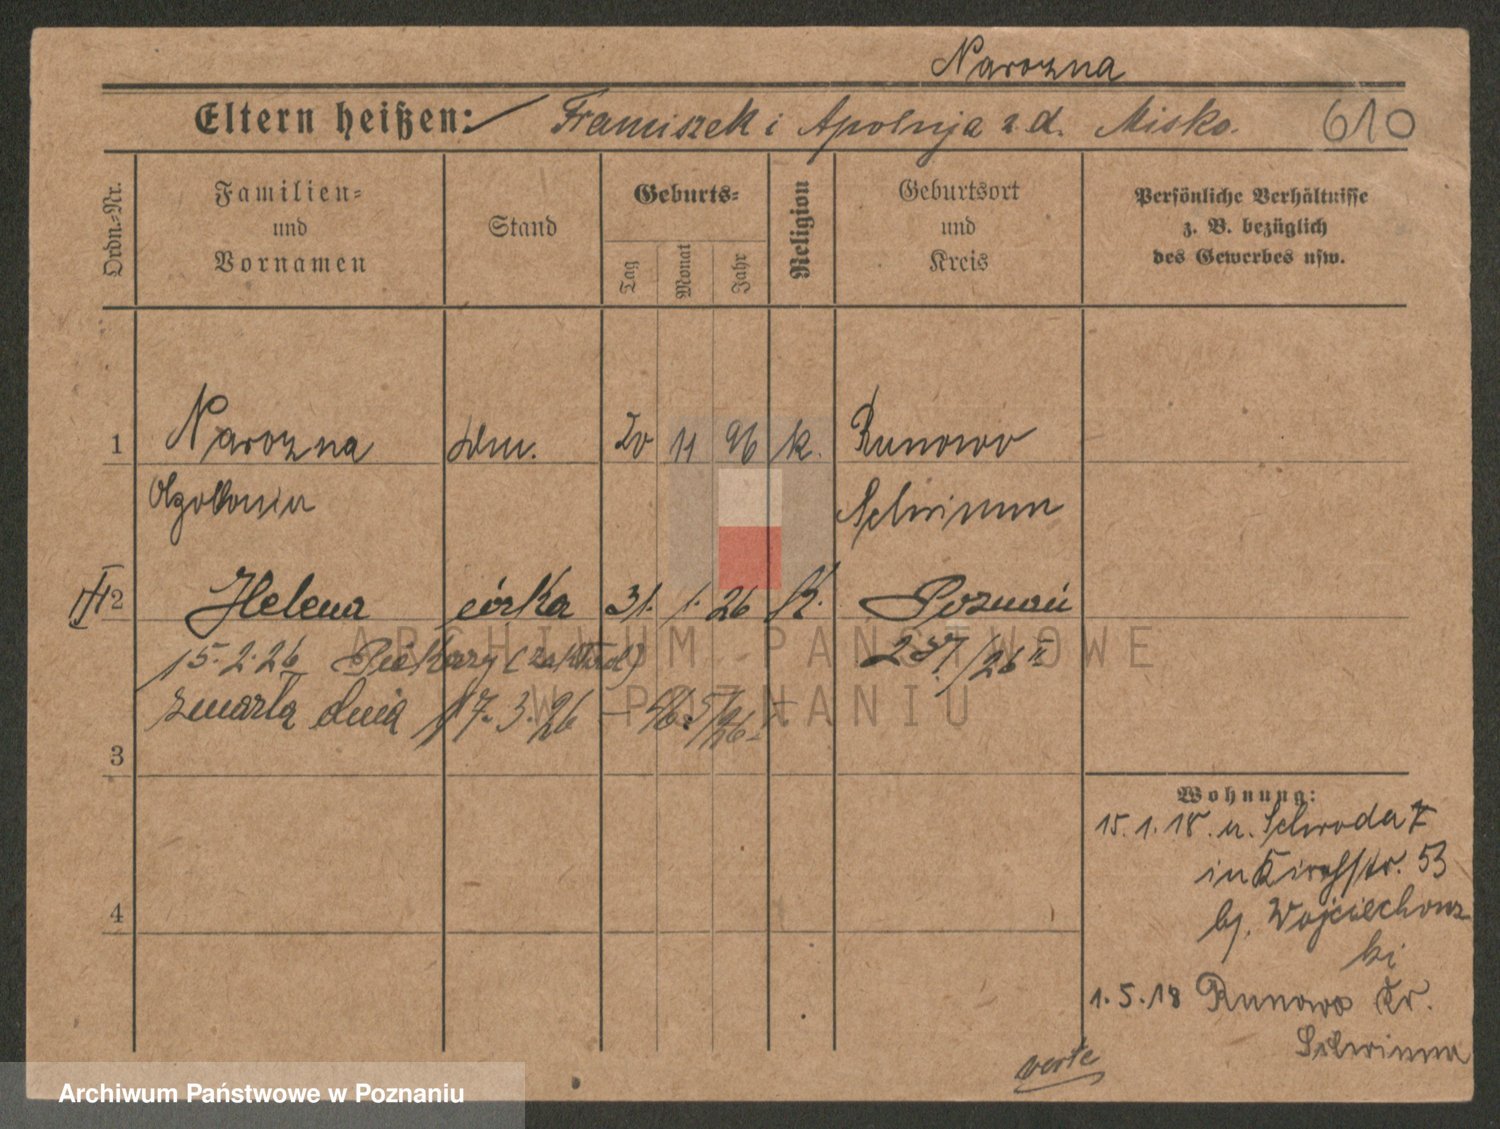 Narozna
Eltern heißen: Franciszek i Apolnja z d. Misko. 610
Ordn.-Nr.
Familien-
und
Vornamen
Stand
Geburts-
Tag
Monat
Jahr
Religion
Geburtsort
und
Kreis
Persönliche Verhältnisse
z. B. bezüglich
des Gewerbes usw.
1 Narozna 20 11 96 k. Runowo
Schrimm
2 Helena córka 31. 1. 26 K. Poznań
15.2.26 Piekary (zakład) /26 II
zmarła dnia 17.3.26
3
4
Wohnung:
15.1.18. u. Schroda
in Kirchstr. 53
bj. Wojciechows
ki
1.5.18 Runowo Kr.
Schrimm
verte
ARCHIWUM PAŃSTWOWE
W POZNANIU
Archiwum Państwowe w Poznaniu